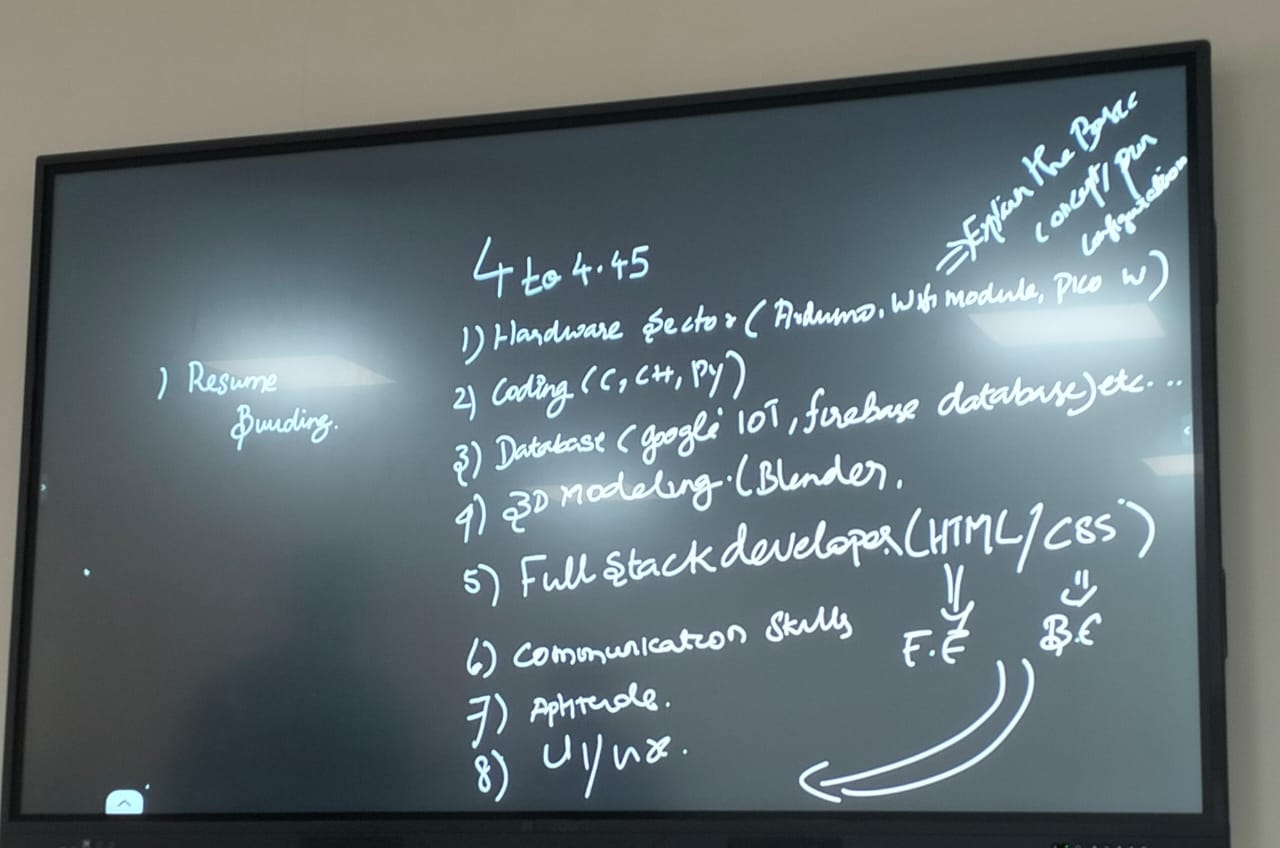 => Explain the Basic
concept/ pin
configuration
4 to 4.45
1) Hardware Sector (Arduino, Wifi module, Pico W)
2) Coding (C, C++, Py)
3) Database (google IOT, firebase database) etc...
4) 3D Modeling. (Blender.
5) Full Stack developer (HTML/CSS)
F.E B.E
6) Communication Skills
7) Aptitude.
8) UI/UX.
) Resume
Building.